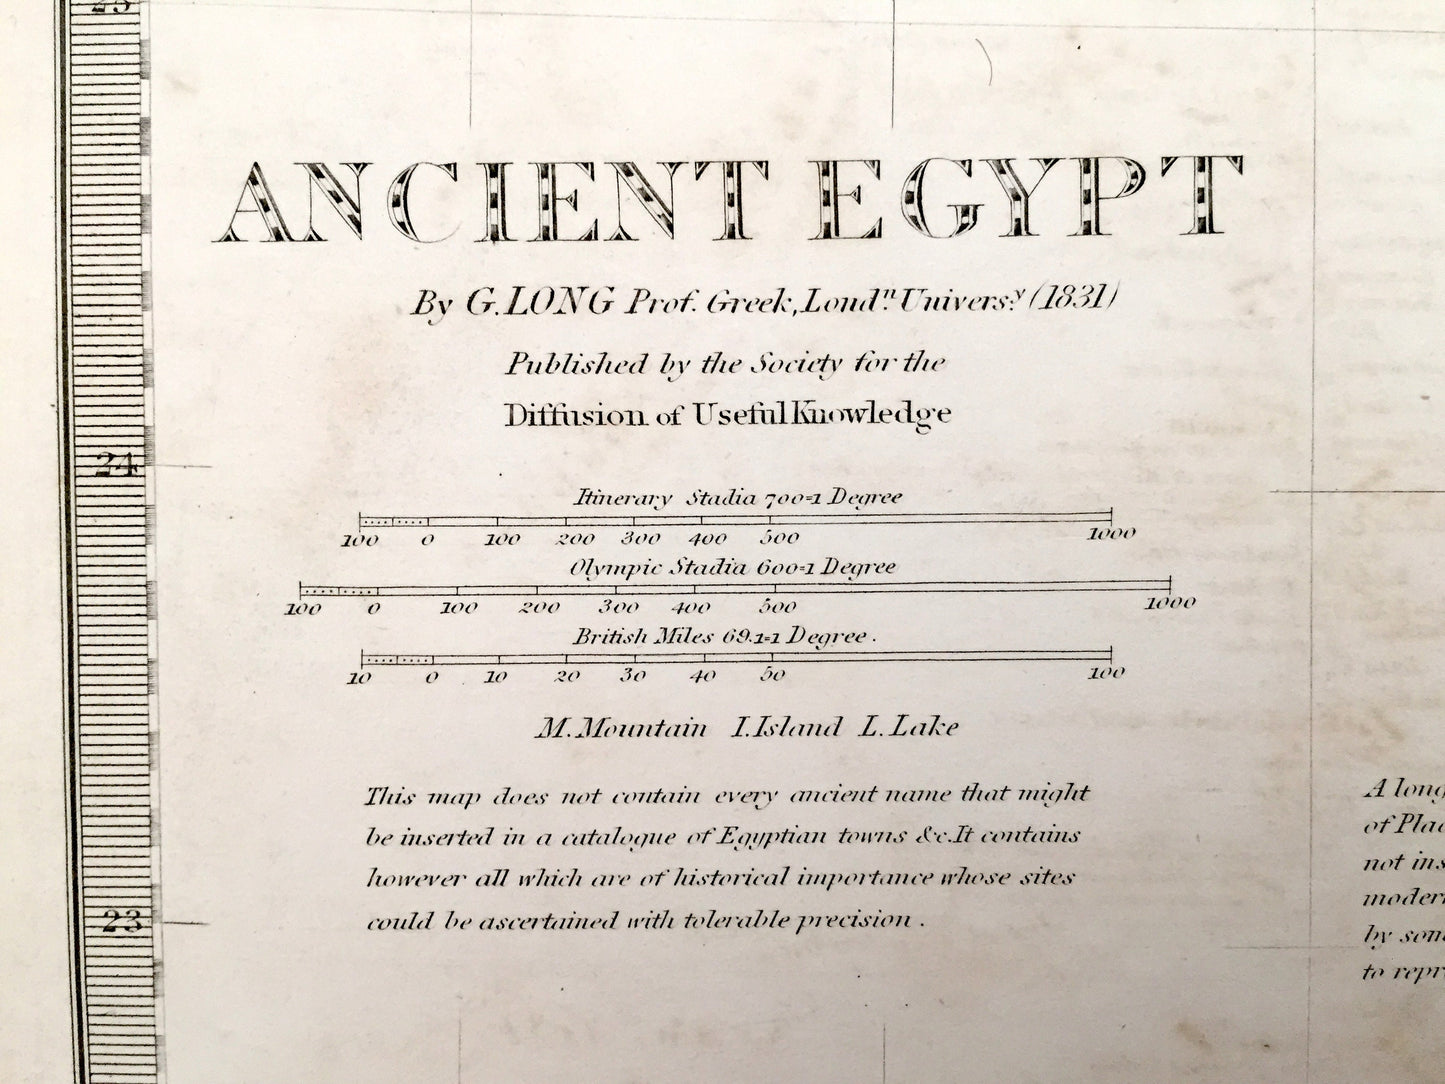 25
ANCIENT EGYPT
By G. LONG Prof. Greek, Lond.ⁿ Univers.ʸ (1831)
Published by the Society for the
Diffusion of Useful Knowledge
24
Itinerary Stadia 700=1 Degree
100 0 100 200 300 400 500 1000
Olympic Stadia 600=1 Degree
100 0 100 200 300 400 500 1000
British Miles 69.1=1 Degree.
10 0 10 20 30 40 50 100
M. Mountain I. Island L. Lake
This map does not contain every ancient name that might
be inserted in a catalogue of Egyptian towns &c. It contains
however all which are of historical importance whose sites
could be ascertained with tolerable precision.
23
A long
of Plac
not ins
modern
by som
to repr